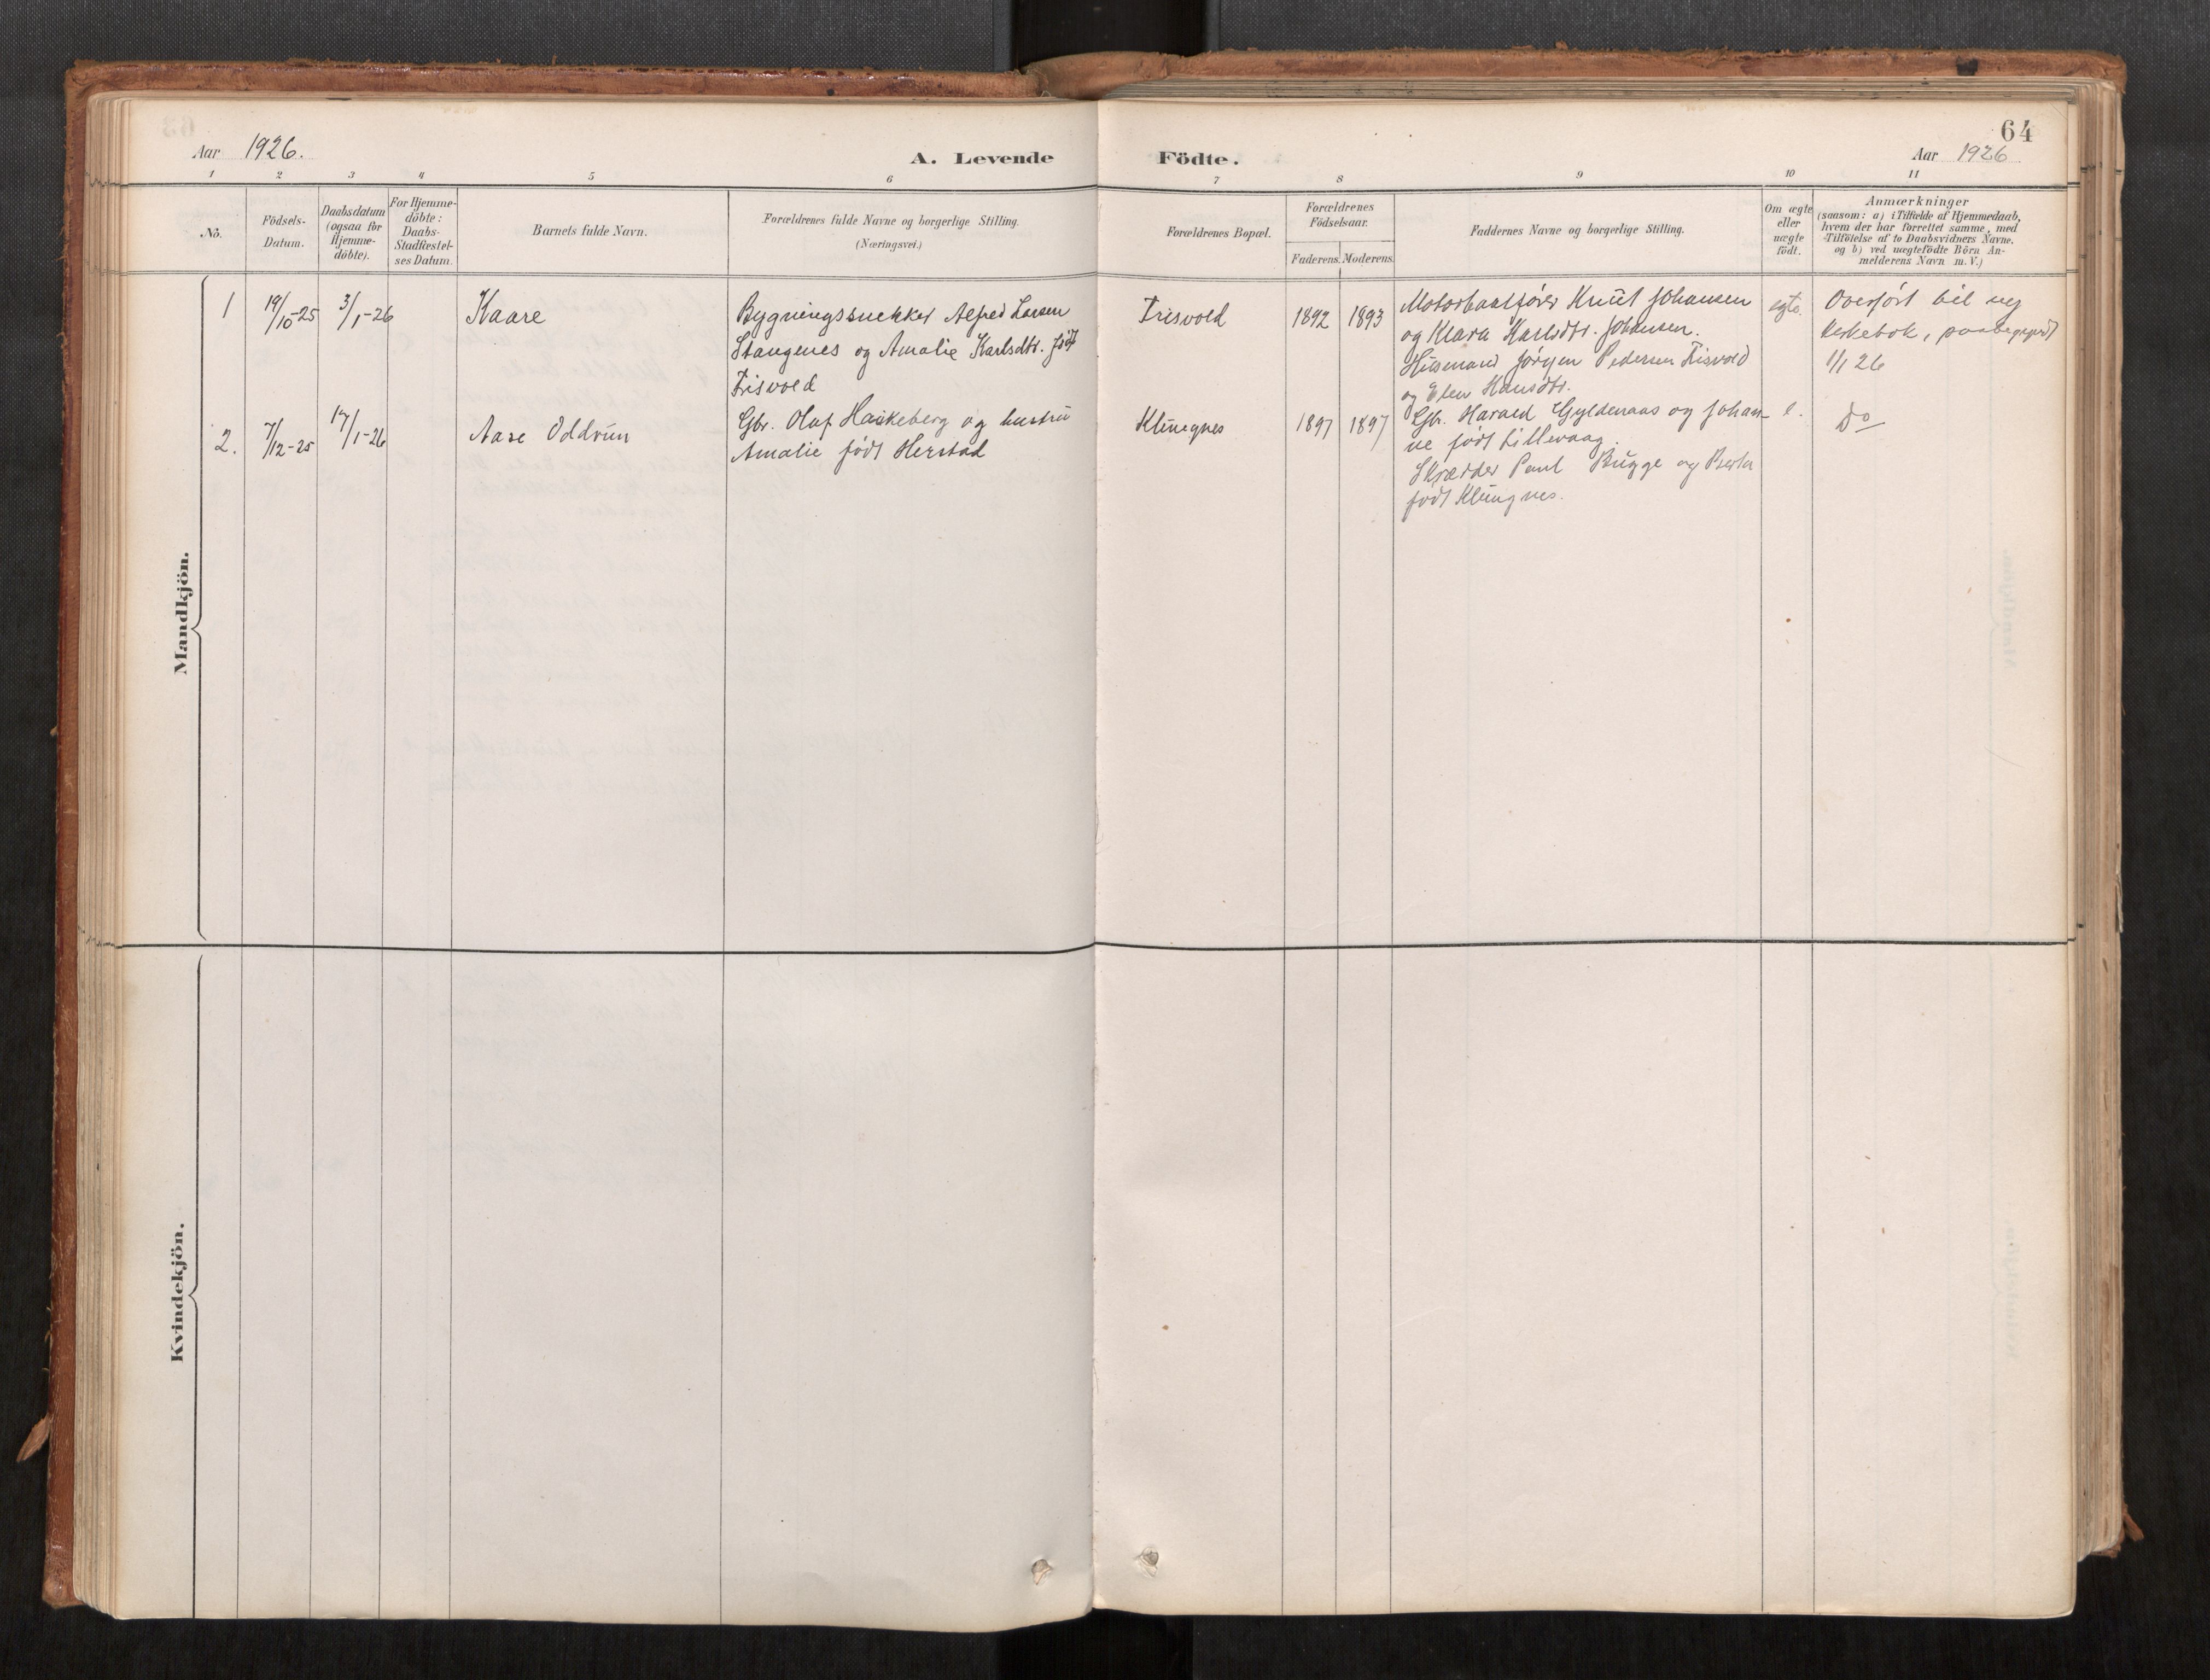 64
Aar 1926.
A. Levende Födte.
Aar 1926
1 2 3 4 5 6 7 8 9 10 11
No.
Födsels-
Datum.
Daabsdatum
(ogsaa for
Hjemme-
döbte).
For Hjemme-
döbte:
Daabs-
Stadfæstel-
ses Datum.
Barnets fulde Navn.
Forældrenes fulde Navne og borgerlige Stilling.
(Næringsvei.)
Forældrenes Bopæl.
Forældrenes
Födselsaar.
Faderens. Moderens.
Faddernes Navne og borgerlige Stilling.
Om ægte
eller
uægte
födt.
Anmærkninger
(saasom: a) i Tilfælde af Hjemmedaab,
hvem der har forrettet samme, med
Tilföielse af to Daabsvidners Navne,
og b) ved uægtefödte Börn An-
melderens Navn m. V.)
Mandkjön.
1
19/10-25
3/1-26
Kaare
Bygningssnekker Alfred Larsen
Stangenes og Amalie Karlsdtr. født
Trisvold
Trisvold
1892 1893
Motorbaatfører Knut Johansen
og Klara Karlsdtr. Johansen.
Husmand Jørgen Pedersen Trisvold
og Elen Hansdtr.
egte.
Overført til ny
kirkebok, paabegyndt
1/1 26
2.
7/12-25
17/1-26
Aase Oddrun
Gbr. Olaf Haskeberg og hustru
Amalie født Herstad
Klungnes
1897 1897
Gbr. Harald Gyldenaas og Johan-
ne født Lillevaag.
Skrædder Paul Bugge og Berta
født Klungnes.
e.
Do
Kvindekjön.